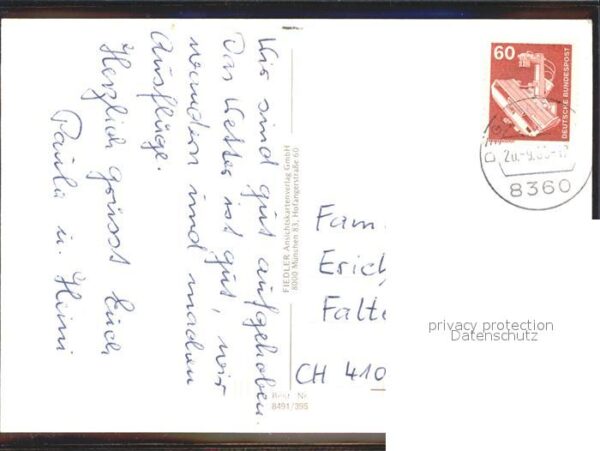 Wir sind gut aufgehoben.
Das Wetter ist gut, wir
wandern und machen
Ausflüge.
Herzlich grüsst Euch
Paula u. Heini
FIEDLER Ansichtskartenverlag GmbH
8000 München 83, Hofangerstraße 60
Best. Nr.
8491/395
60
DEUTSCHE BUNDESPOST
8360
Fam
Erich
Falte
CH 410
privacy protection
Datenschutz